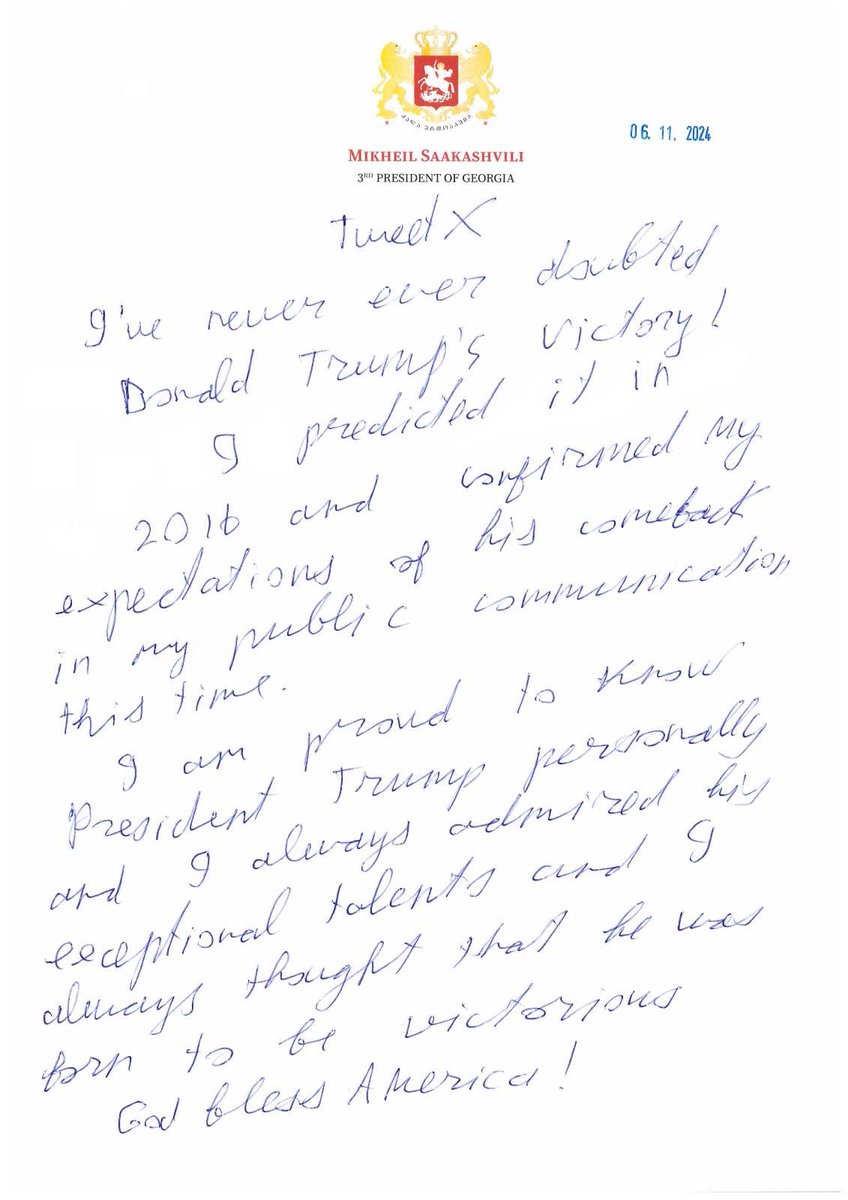 ძალა ერთობაშია
06. 11. 2024
MIKHEIL SAAKASHVILI
3RD PRESIDENT OF GEORGIA
Tweet X
I've never ever doubted
Donald Trump's victory!
I predicted it in
2016 and confirmed my
expectations of his comeback
in my public communication
this time.
I am proud to know
President Trump personally
and I always admired his
exceptional talents and I
always thought that he was
born to be victorious
God bless America!